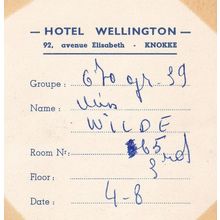 — HOTEL WELLINGTON —
92, avenue Elisabeth - KNOKKE
Groupe : 670 gr. 39
Name : Miss
WILDE
Room Nʳ: 65
Floor : 3rd
Date : 4-8